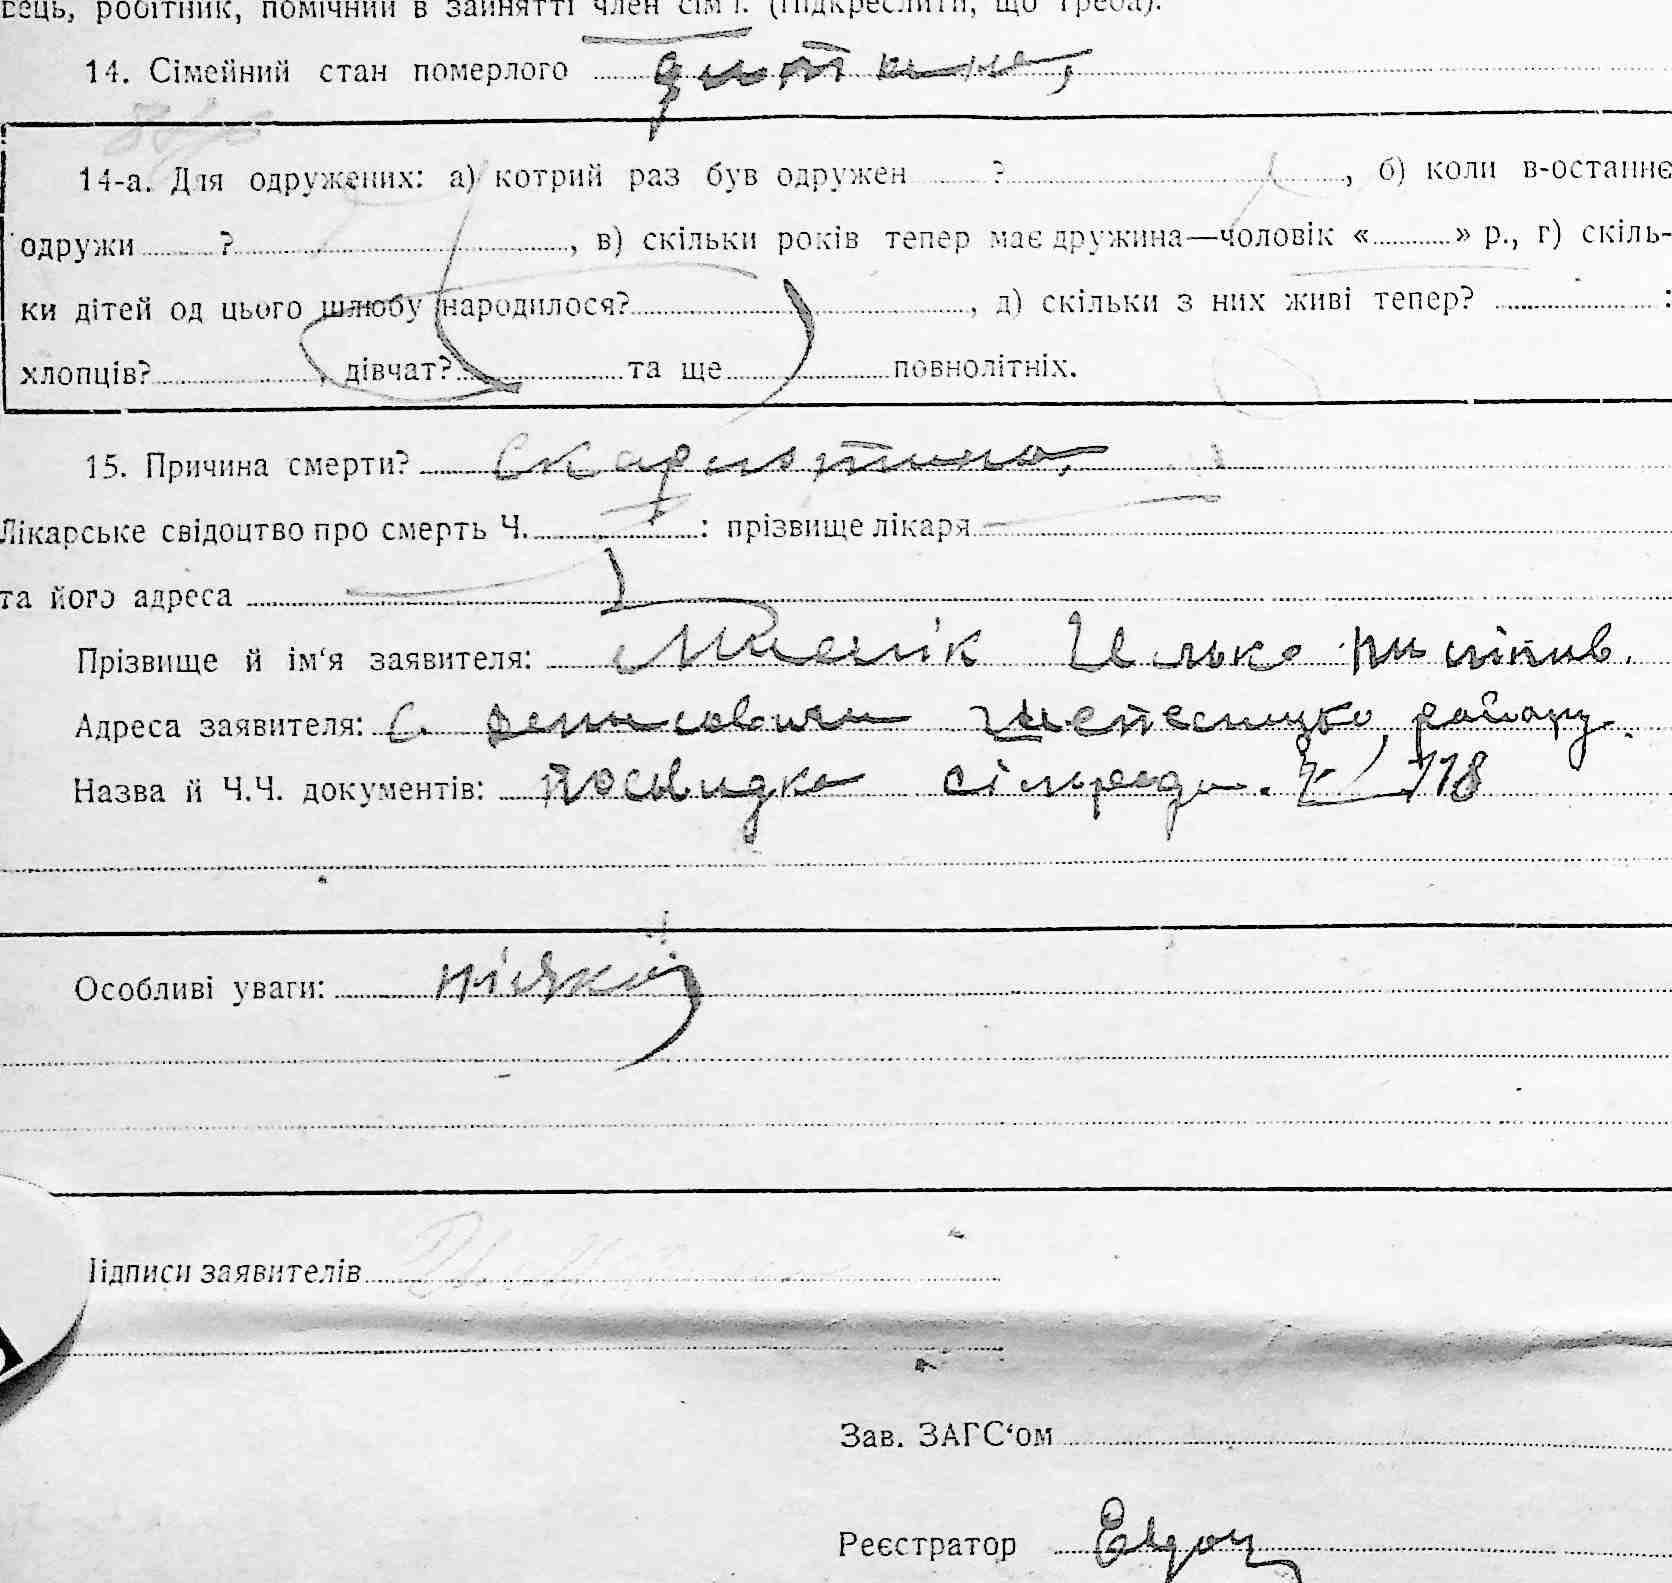 вець, робітник, помічний в зайнятті член сім'ї. (Підкреслити, що треба).
14. Сімейний стан померлого дитина,
14-а. Для одружених: а) котрий раз був одружен ?, б) коли в-останнє
одружи ?, в) скільки років тепер має дружина—чоловік « » р., г) скіль-
ки дітей од цього шлюбу народилося?, д) скільки з них живі тепер? :
хлопців? , дівчат? та ще повнолітніх.
15. Причина смерти? Скарлятина,
Лікарське свідоцтво про смерть Ч. : прізвище лікаря
та його адреса
Прізвище й ім'я заявителя: Ілько
Адреса заявителя: С. Денисовичи району.
Назва й Ч.Ч. документів: Посьвидка сільради. 118
Особливі уваги: ніяких
Підписи заявителів
Зав. ЗАГС'ом
Реєстратор